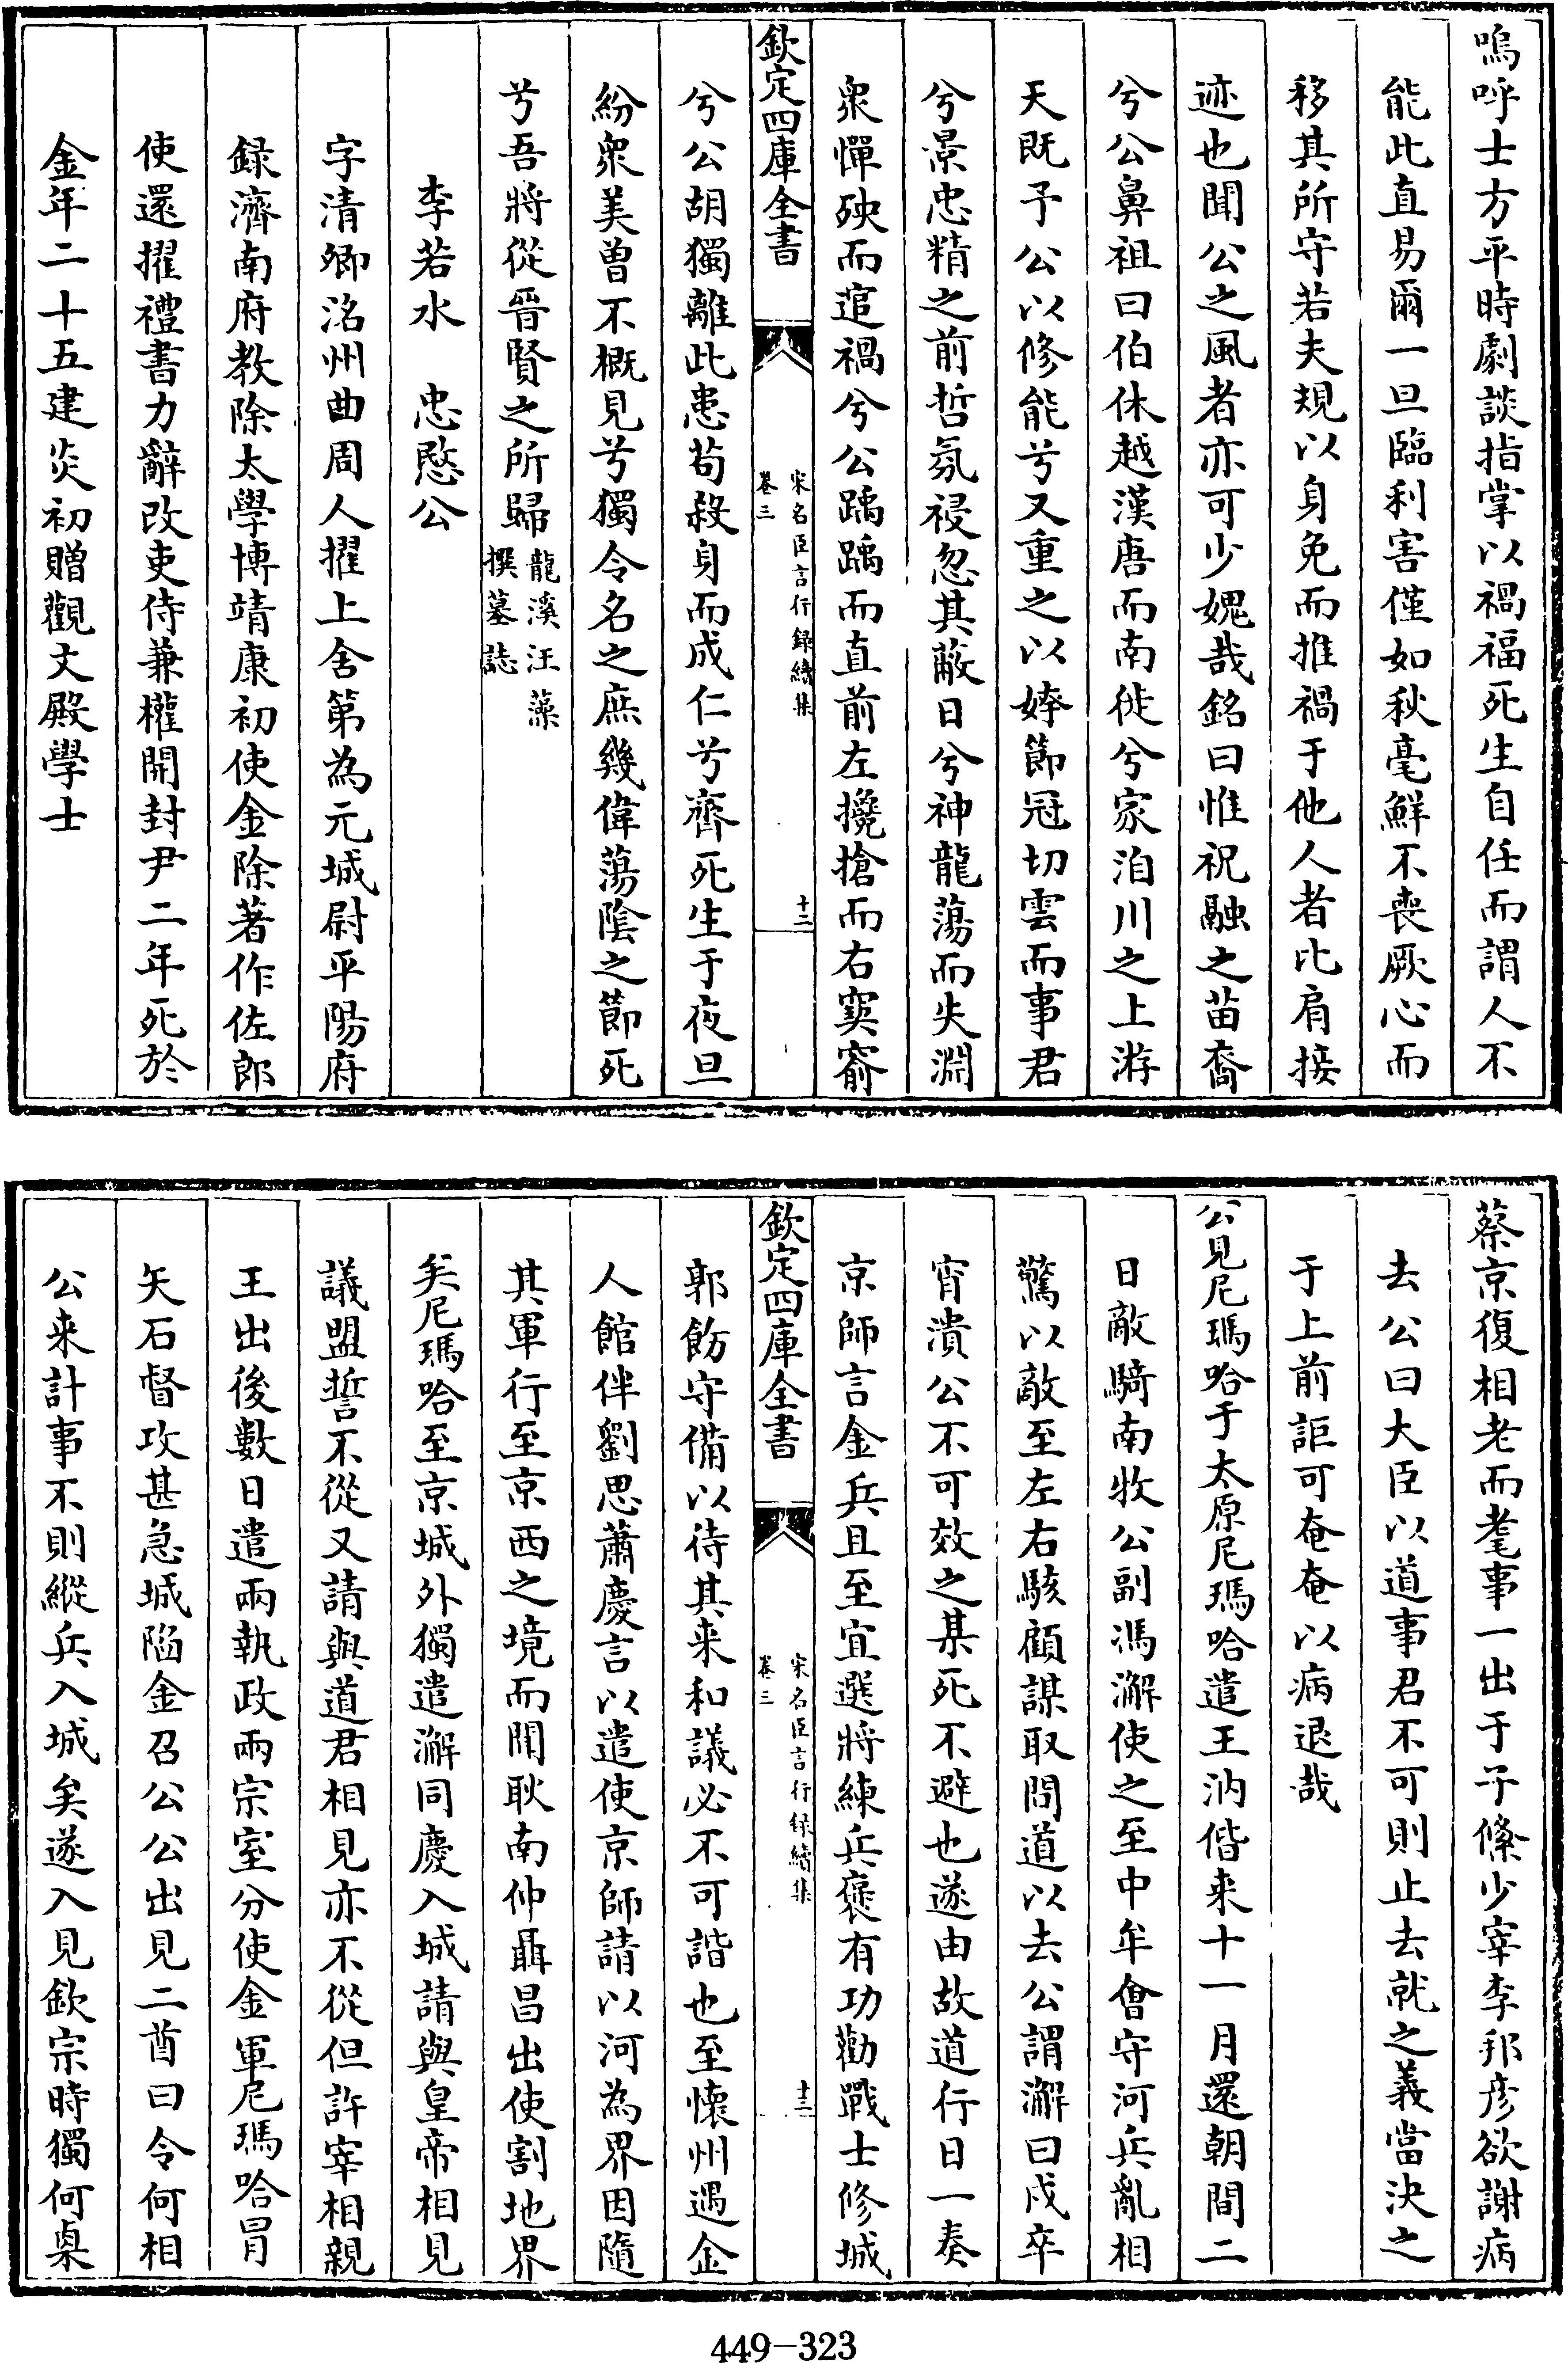 嗚呼士方平時劇談指掌以禍福死生自任而謂人不
能此直易爾一旦臨利害僅如秋毫鮮不喪厥心而
移其所守若夫規以身免而推禍于他人者比肩接
迹也聞公之風者亦可少媿哉銘曰惟祝融之苗裔
兮公鼻祖曰伯休越漢唐而南徙兮家洎川之上游
天既予公以修能兮又重之以姱節冠切雲而事君
兮景忠精之前哲氛祲忽其蔽日兮神龍蕩而失淵
衆憚殃而逭禍兮公踽踽而直前左攙搶而右窫窳
欽定四庫全書
宋名臣言行録續集
卷三
十二
兮公胡獨離此患苟殺身而成仁兮齊死生于夜旦
紛衆美曾不概見兮獨令名之庶幾偉蕩陰之節死
兮吾將從晉賢之所歸龍溪汪藻撰墓誌
李若水 忠愍公
字清卿洺州曲周人擢上舍第為元城尉平陽府
録濟南府教除太學博靖康初使金除著作佐郎
使還擢禮書力辭改吏侍兼權開封尹二年死於
金年二十五建炎初贈觀文殿學士
蔡京復相老而耄事一出于子絛少宰李邦彥欲謝病
去公曰大臣以道事君不可則止去就之義當決之
于上前詎可奄奄以病退哉
公見尼瑪哈于太原尼瑪哈遣王汭偕来十一月還朝間二
日敵騎南牧公副馮澥使之至中牟㑹守河兵亂相
驚以敵至左右駭顧謀取間道以去公謂澥曰戍卒
宵潰公不可效之某死不避也遂由故道行日一奏
京師言金兵且至宜選將練兵褒有功勸戰士修城
欽定四庫全書
宋名臣言行録續集
卷三
十三
郭飭守備以待其来和議必不可諧也至懷州遇金
人館伴劉思蕭慶言以遣使京師請以河為界因隨
其軍行至京西之境而聞耿南仲聶昌出使割地界
矣尼瑪哈至京城外獨遣澥同慶入城請與皇帝相見
議盟誓不從又請與道君相見亦不從但許宰相親
王出後數日遣兩執政兩宗室分使金軍尼瑪哈冒
矢石督攻甚急城陷金召公公出見二酋曰令何相
公来計事不則縱兵入城矣遂入見欽宗時獨何㮚
449-323